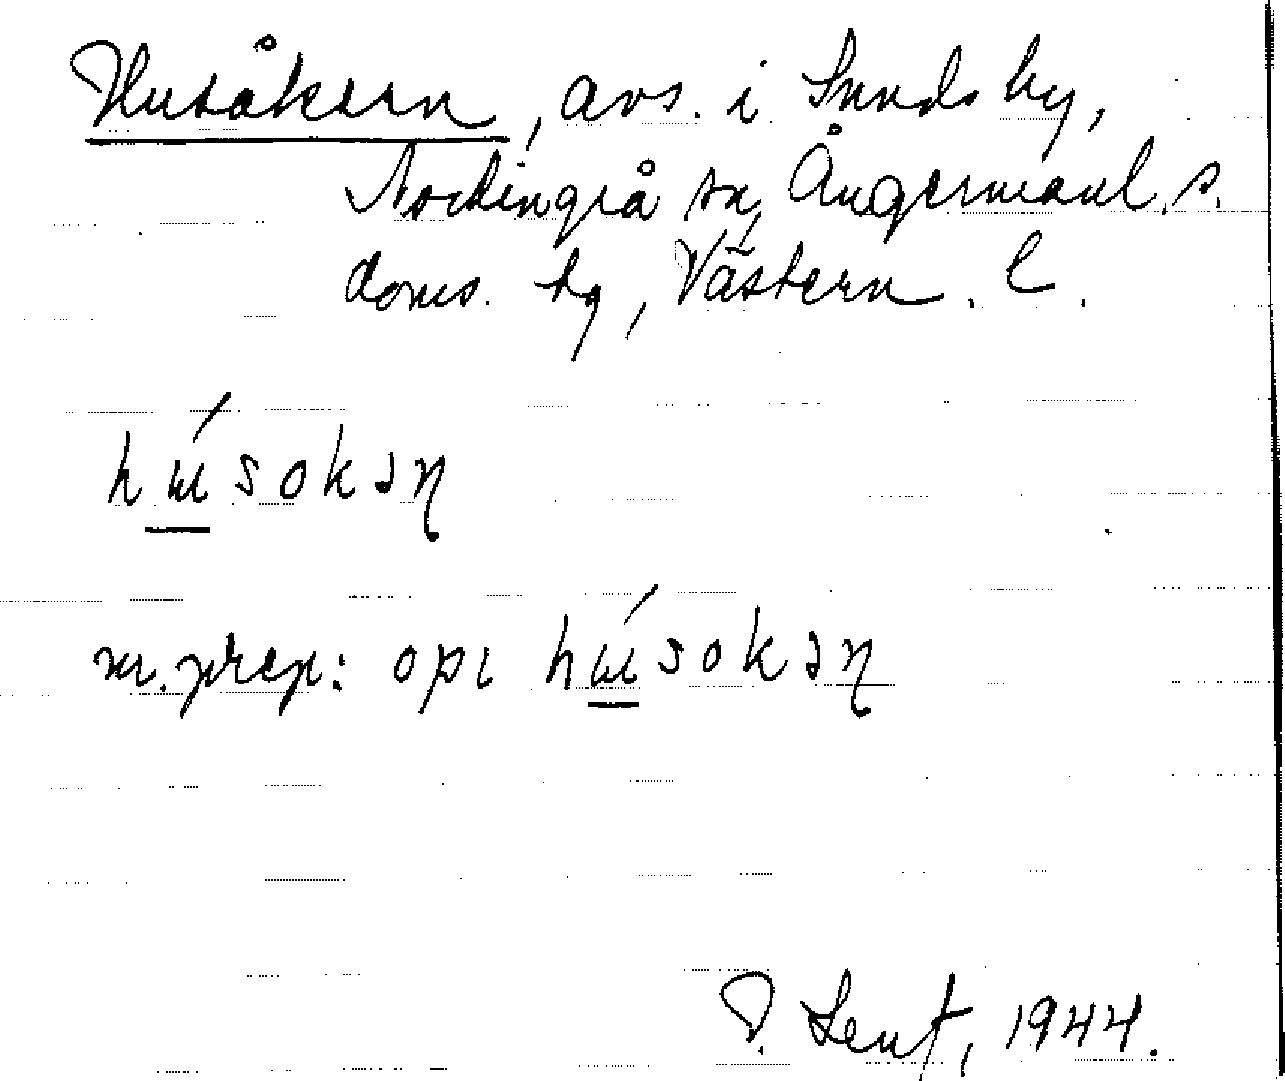 Husåkern, avs. i Sunds by,
Nordingrå sn, Ångermanl. s.
doms. tg, Västern. l.
hɯ́sokəɳ
m. prep: opɩ hɯ́sokəɳ
1944.